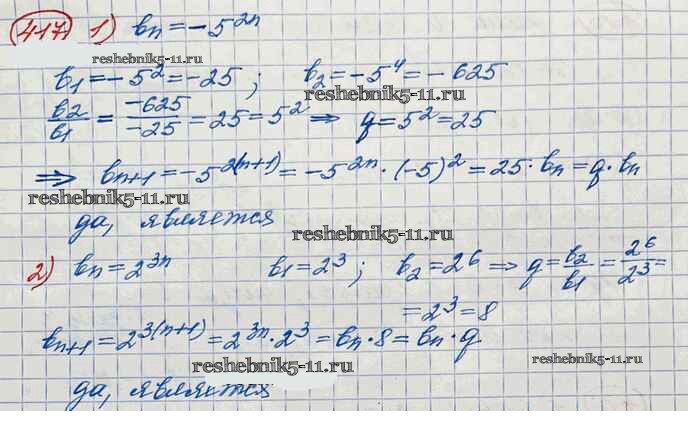 417. 1) bₙ = -5²ⁿ
reshebnik5-11.ru
b₁ = -5² = -25; b₂ = -5⁴ = -625
reshebnik5-11.ru
b₂/b₁ = -625/-25 = 25 = 5² ⇒ q = 5² = 25
⇒ bₙ₊₁ = -5²⁽ⁿ⁺¹⁾ = -5²ⁿ · (-5)² = 25 · bₙ = q · bₙ
reshebnik5-11.ru
да, является
reshebnik5-11.ru
2) bₙ = 2³ⁿ b₁ = 2³; b₂ = 2⁶ ⇒ q = b₂/b₁ = 2⁶/2³ =
= 2³ = 8
bₙ₊₁ = 2³⁽ⁿ⁺¹⁾ = 2³ⁿ · 2³ = bₙ · 8 = bₙ · q
reshebnik5-11.ru
reshebnik5-11.ru
да, является